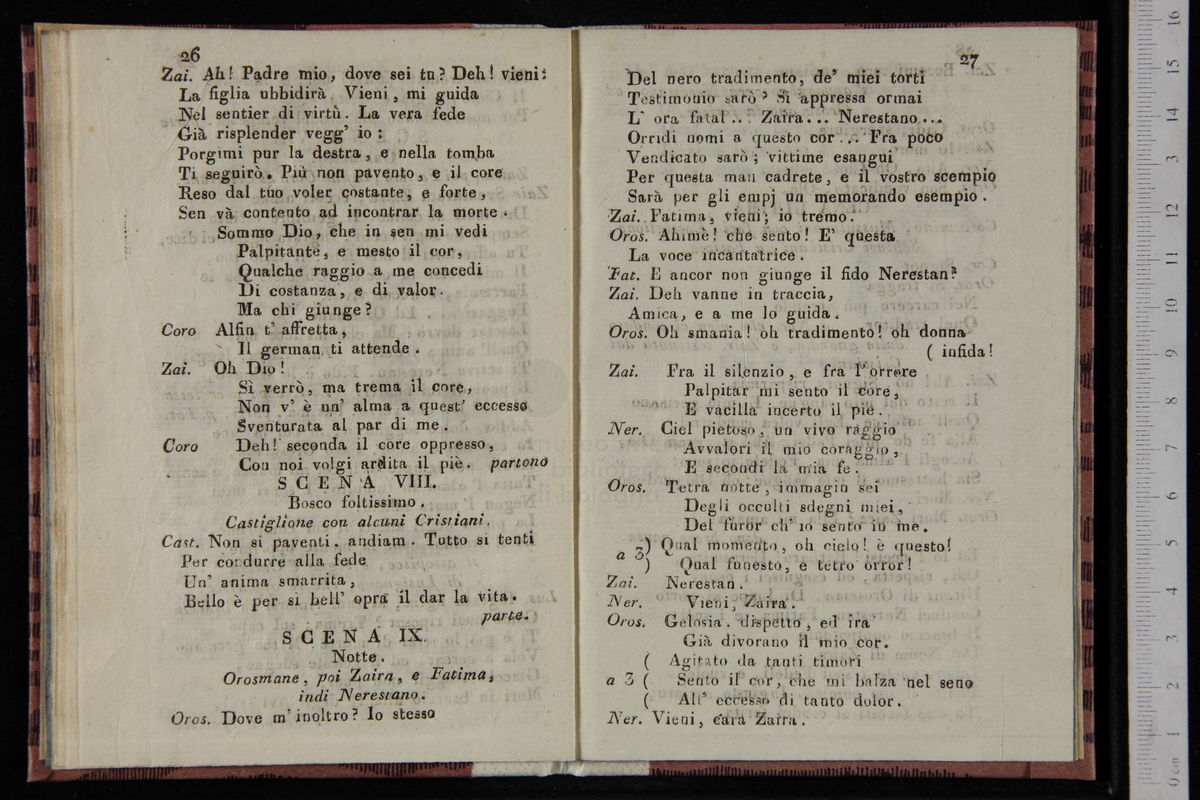 26
Zai. Ah! Padre mio, dove sei tu? Deh! vieni:
La figlia ubbidirà. Vieni, mi guida
Nel sentier di virtù. La vera fede
Già risplender vegg' io:
Porgimi pur la destra, e nella tomba
Ti seguirò. Più non pavento, e il core
Reso dal tuo voler costante, e forte,
Sen và contento ad incontrar la morte.
Sommo Dio, che in sen mi vedi
Palpitante, e mesto il cor,
Qualche raggio a me concedi
Di costanza, e di valor.
Ma chi giunge?
Coro Alfin t' affretta,
Il german ti attende.
Zai. Oh Dio!
Sì verrò, ma trema il core,
Non v' è un' alma a quest' eccesso
Sventurata al par di me.
Coro Deh! seconda il core oppresso,
Con noi volgi ardita il piè. partono
SCENA VIII.
Bosco foltissimo.
Castiglione con alcuni Cristiani.
Cast. Non si paventi, andiam. Tutto si tenti
Per condurre alla fede
Un' anima smarrita,
Bello è per sì bell' opra il dar la vita.
parte.
SCENA IX.
Notte.
Orosmane, poi Zaira, e Fatima,
indi Nerestano.
Oros. Dove m' inoltro? Io stesso
27
Del nero tradimento, de' miei torti
Testimonio sarò? Si appressa ormai
L' ora fatal... Zaira... Nerestano...
Orridi nomi a questo cor... Fra poco
Vendicato sarò; vittime esangui
Per questa man cadrete, e il vostro scempio
Sarà per gli empj un memorando esempio.
Zai. Fatima, vieni; io tremo.
Oros. Ahimè! che sento! E' questa
La voce incantatrice.
Fat. E ancor non giunge il fido Nerestan?
Zai. Deh vanne in traccia,
Amica, e a me lo guida.
Oros. Oh smania! oh tradimento! oh donna
( infida!
Zai. Fra il silenzio, e fra l' orrore
Palpitar mi sento il core,
E vacilla incerto il piè.
Ner. Ciel pietoso, un vivo raggio
Avvalori il mio coraggio,
E secondi la mia fe.
Oros. Tetra notte, immagin sei
Degli occulti sdegni miei,
Del furor ch' io sento in me.
a 3) Qual momento, oh cielo! è questo!
) Qual funesto, e tetro orror!
Zai. Nerestan.
Ner. Vieni, Zaira.
Oros. Gelosia, dispetto, ed ira
Già divorano il mio cor.
( Agitato da tanti timori
a 3 ( Sento il cor, che mi balza nel seno
( All' eccesso di tanto dolor.
Ner. Vieni, cara Zaira.
0 cm 1 2 3 4 5 6 7 8 9 10 11 12 13 14 15 16